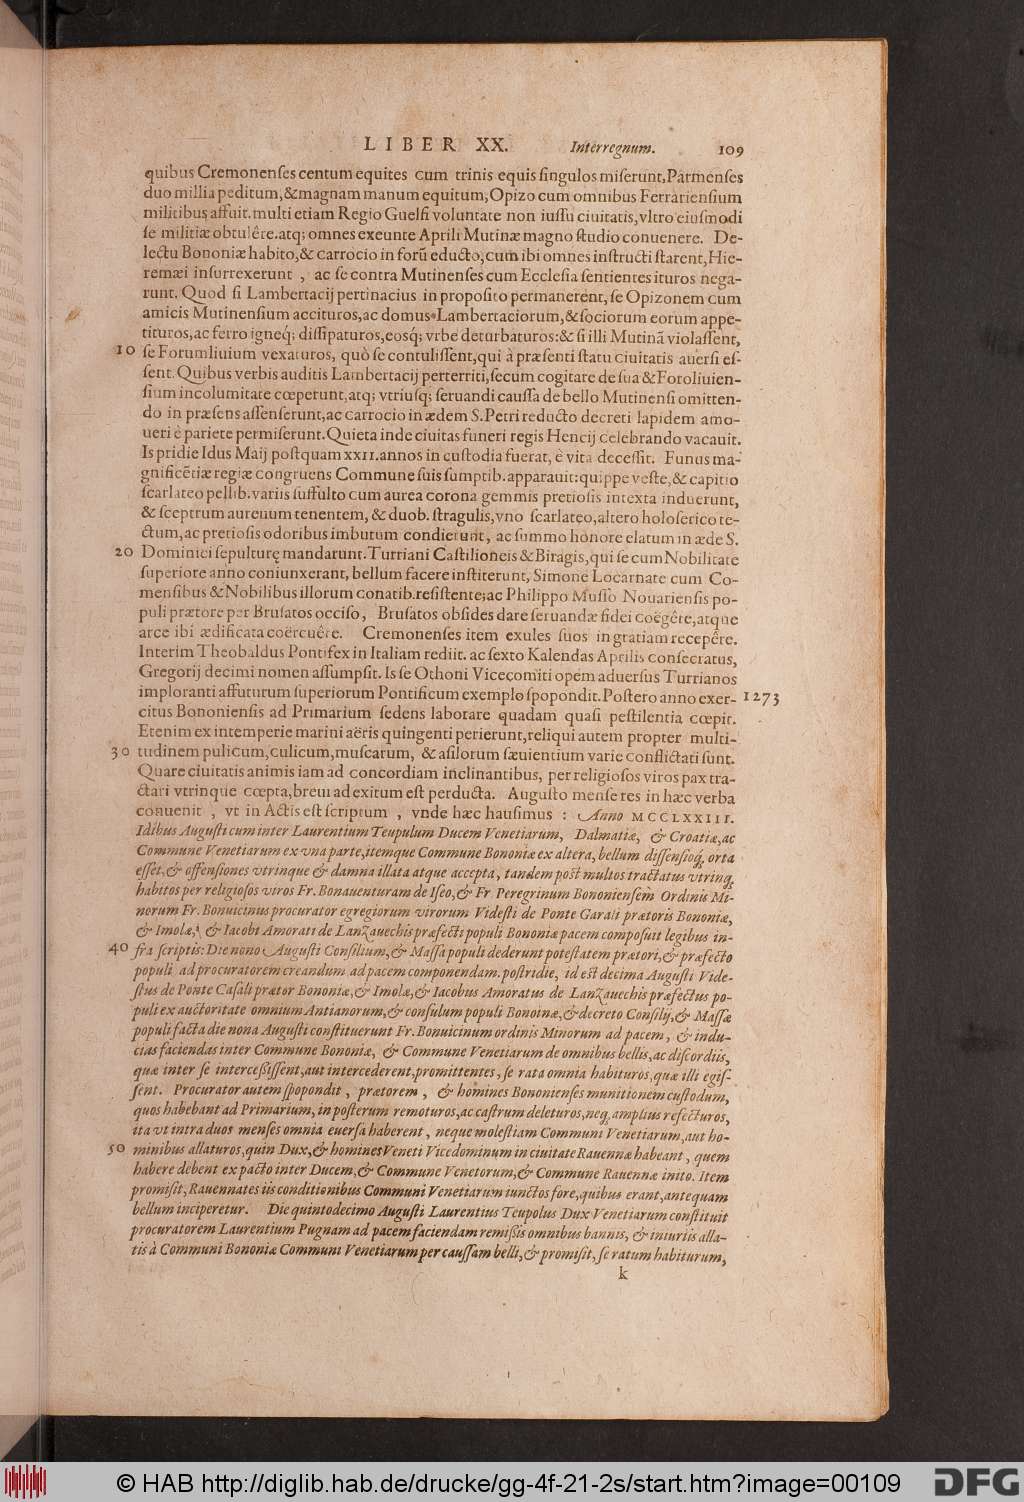 LIBER XX. Interregnum. 109
quibus Cremonenſes centum equites cum trinis equis ſingulos miſerunt, Parmenſes
duo millia peditum, & magnam manum equitum, Opizo cum omnibus Ferrarienſium
militibus affuit. multi etiam Regio Guelfi voluntate non iuſſu ciuitatis, vltro eiuſmodi
ſe militiæ obtulêre. atq; omnes exeunte Aprili Mutinæ magno ſtudio conuenere. De-
lectu Bononiæ habito, & carrocio in forũ educto, cum ibi omnes inſtructi ſtarent, Hie-
remæi inſurrexerunt, ac ſe contra Mutinenſes cum Eccleſia ſentientes ituros nega-
runt. Quod ſi Lambertacij pertinacius in propoſito permanerent, ſe Opizonem cum
amicis Mutinenſium accituros, ac domus Lambertaciorum, & ſociorum eorum appe-
tituros, ac ferro igneq; diſſipaturos, eosq; vrbe deturbaturos: & ſi illi Mutinã violaſſent,
10 ſe Forumliuium vexaturos, quò ſe contuliſſent, qui à præſenti ſtatu ciuitatis auerſi eſ-
ſent. Quibus verbis auditis Lambertacij perterriti, ſecum cogitare de ſua & Foroliuien-
ſium incolumitate cœperunt, atq; vtriuſq; ſeruandi cauſſa de bello Mutinenſi omitten-
do in præſens aſſenſerunt, ac carrocio in ædem S. Petri reducto decreti lapidem amo-
ueri è pariete permiſerunt. Quieta inde ciuitas funeri regis Hencij celebrando vacauit.
Is pridie Idus Maij poſtquam XXII. annos in cuſtodia fuerat, è vita deceſſit. Funus ma-
gnificẽtiæ regiæ congruens Commune ſuis ſumptib. apparauit: quippe veſte, & capitio
ſcarlateo pellib. variis ſuffulto cum aurea corona gemmis pretioſis intexta induerunt,
& ſceptrum aureum tenentem, & duob. ſtragulis, vno ſcarlateo, altero holoſerico te-
ctum, ac pretioſis odoribus imbutum condierunt, ac ſummo honore elatum in æde S.
20 Dominici ſepulturę mandarunt. Turriani Caſtilioneis & Biragis, qui ſe cum Nobilitate
ſuperiore anno coniunxerant, bellum facere inſtiterunt, Simone Locarnate cum Co-
menſibus & Nobilibus illorum conatib. reſiſtente; ac Philippo Muſſo Nouarienſis po-
puli prætore per Bruſatos occiſo, Bruſatos obſides dare ſeruandæ fidei coëgêre, atque
arce ibi ædificata coërcuêre. Cremonenſes item exules ſuos in gratiam recepêre.
Interim Theobaldus Pontifex in Italiam rediit. ac ſexto Kalendas Aprilis conſecratus,
Gregorij decimi nomen aſſumpſit. Is ſe Othoni Vicecomiti opem aduerſus Turrianos
imploranti affuturum ſuperiorum Pontificum exemplo ſpopondit. Poſtero anno exer- 1273
citus Bononienſis ad Primarium ſedens laborare quadam quaſi peſtilentia cœpit.
Etenim ex intemperie marini aëris quingenti perierunt, reliqui autem propter multi-
30 tudinem pulicum, culicum, muſcarum, & aſilorum ſæuientium varie conflictati ſunt.
Quare ciuitatis animis iam ad concordiam inclinantibus, per religioſos viros pax tra-
ctari vtrinque cœpta, breui ad exitum eſt perducta. Auguſto menſe res in hæc verba
conuenit, vt in Actis eſt ſcriptum, vnde hæc hauſimus: Anno MCCLXXIII.
Idibus Auguſti cum inter Laurentium Teupulum Ducem Venetiarum, Dalmatiæ, & Croatiæ, ac
Commune Venetiarum ex vna parte, itemque Commune Bononiæ ex altera, bellum diſſenſioq; orta
eſſet, & offenſiones vtrinque & damna illata atque accepta, tandem poſt multos tractatus vtrinq;
habitos per religioſos viros Fr. Bonauenturam de Iſeo, & Fr. Peregrinum Bononienſem Ordinis Mi-
norum Fr. Bonuicinus procurator egregiorum virorum Videſti de Ponte Garali prætoris Bononiæ,
& Imolæ, & Iacobi Amorati de Lanzauechis præfecti populi Bononiæ pacem compoſuit legibus in-
40 fra ſcriptis: Die nono Auguſti Conſilium, & Maſſa populi dederunt poteſtatem prætori, & præfecto
populi ad procuratorem creandum ad pacem componendam. poſtridie, id eſt decima Auguſti Vide-
ſtus de Ponte Caſali prætor Bononiæ, & Imolæ, & Iacobus Amoratus de Lanzauechis præfectus po-
puli ex auctoritate omnium Antianorum, & conſulum populi Bonoinæ, & decreto Conſilij, & Maſſæ
populi facta die nona Auguſti conſtituerunt Fr. Bonuicinum ordinis Minorum ad pacem, & indu-
cias faciendas inter Commune Bononiæ, & Commune Venetiarum de omnibus bellis, ac diſcordiis,
quæ inter ſe interceßiſſent, aut intercederent, promittentes, ſe rata omnia habituros, quæ illi egiſ-
ſent. Procurator autem ſpopondit, prætorem, & homines Bononienſes munitionem cuſtodum,
quos habebant ad Primarium, in poſterum remoturos, ac caſtrum deleturos, neq; amplius refecturos,
ita vt intra duos menſes omnia euerſa haberent, neque moleſtiam Communi Venetiarum, aut ho-
50 minibus allaturos, quin Dux, & homines Veneti Vicedominum in ciuitate Rauennæ habeant, quem
habere debent ex pacto inter Ducem, & Commune Venetorum, & Commune Rauennæ inito. Item
promiſit, Rauennates iis conditionibus Communi Venetiarum iunctos fore, quibus erant, antequam
bellum inciperetur. Die quintodecimo Auguſti Laurentius Teupolus Dux Venetiarum conſtituit
procuratorem Laurentium Pugnam ad pacem faciendam remißis omnibus bannis, & iniuriis alla-
tis à Communi Bononiæ Communi Venetiarum per cauſſam belli, & promiſit, ſe ratum habiturum,
k
© HAB http://diglib.hab.de/drucke/gg-4f-21-2s/start.htm?image=00109
DFG